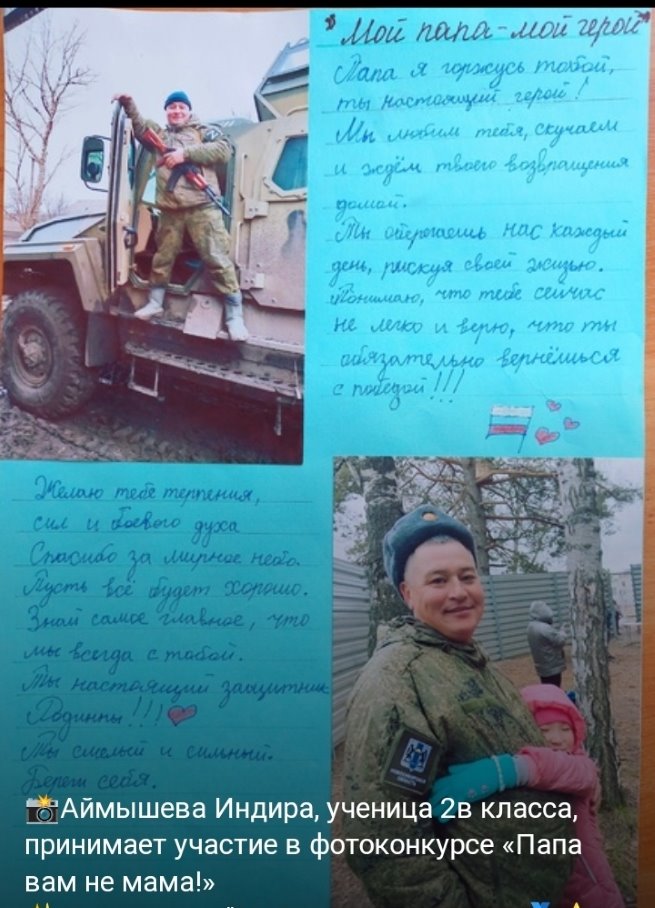 "Мой папа-мой герой"
Папа я горжусь тобой,
ты настоящий герой!
Мы любим тебя, скучаем
и ждём твоего возвращения
домой.
Ты оберегаешь нас каждый
день, рискуя своей жизнью.
Понимаю, что тебе сейчас
не легко и верю, что ты
обязательно вернёшься
с победой!!!
Желаю тебе терпения,
сил и боевого духа
Спасибо за мирное небо.
Пусть всё будет хорошо.
Знай самое главное, что
мы всегда с тобой.
Ты настоящий защитник
Родинны!!!
Ты смелый и сильный.
Береги себя.
📸Аймышева Индира, ученица 2в класса,
принимает участие в фотоконкурсе «Папа
вам не мама!»